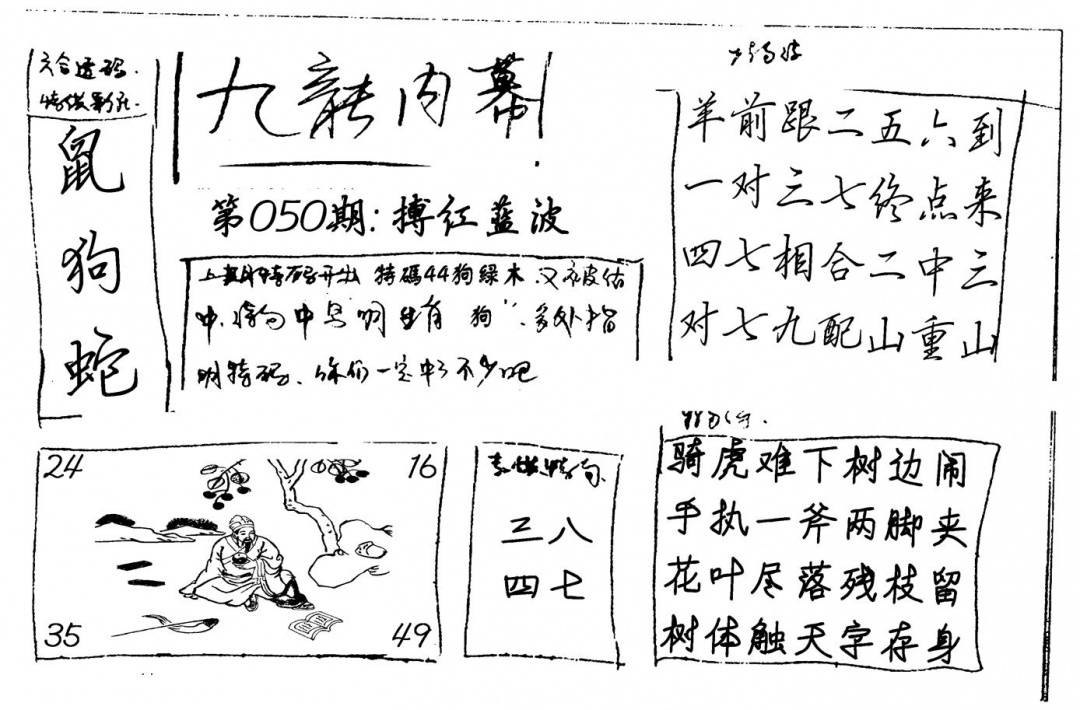 六合透码.
鼠
狗
蛇
九龍内幕
第050期:搏红蓝波
上期特码开出 特碼44狗绿木 又被估
中,中 狗",多处指
明特码、你们一定中了不少吧
羊前跟二五六到
一对三七终点来
四七相合二中三
对七九配山重山
24
16
35
49
三八
四七
骑虎难下树边闹
手执一斧两脚夹
花叶尽落残枝留
树体触天字存身